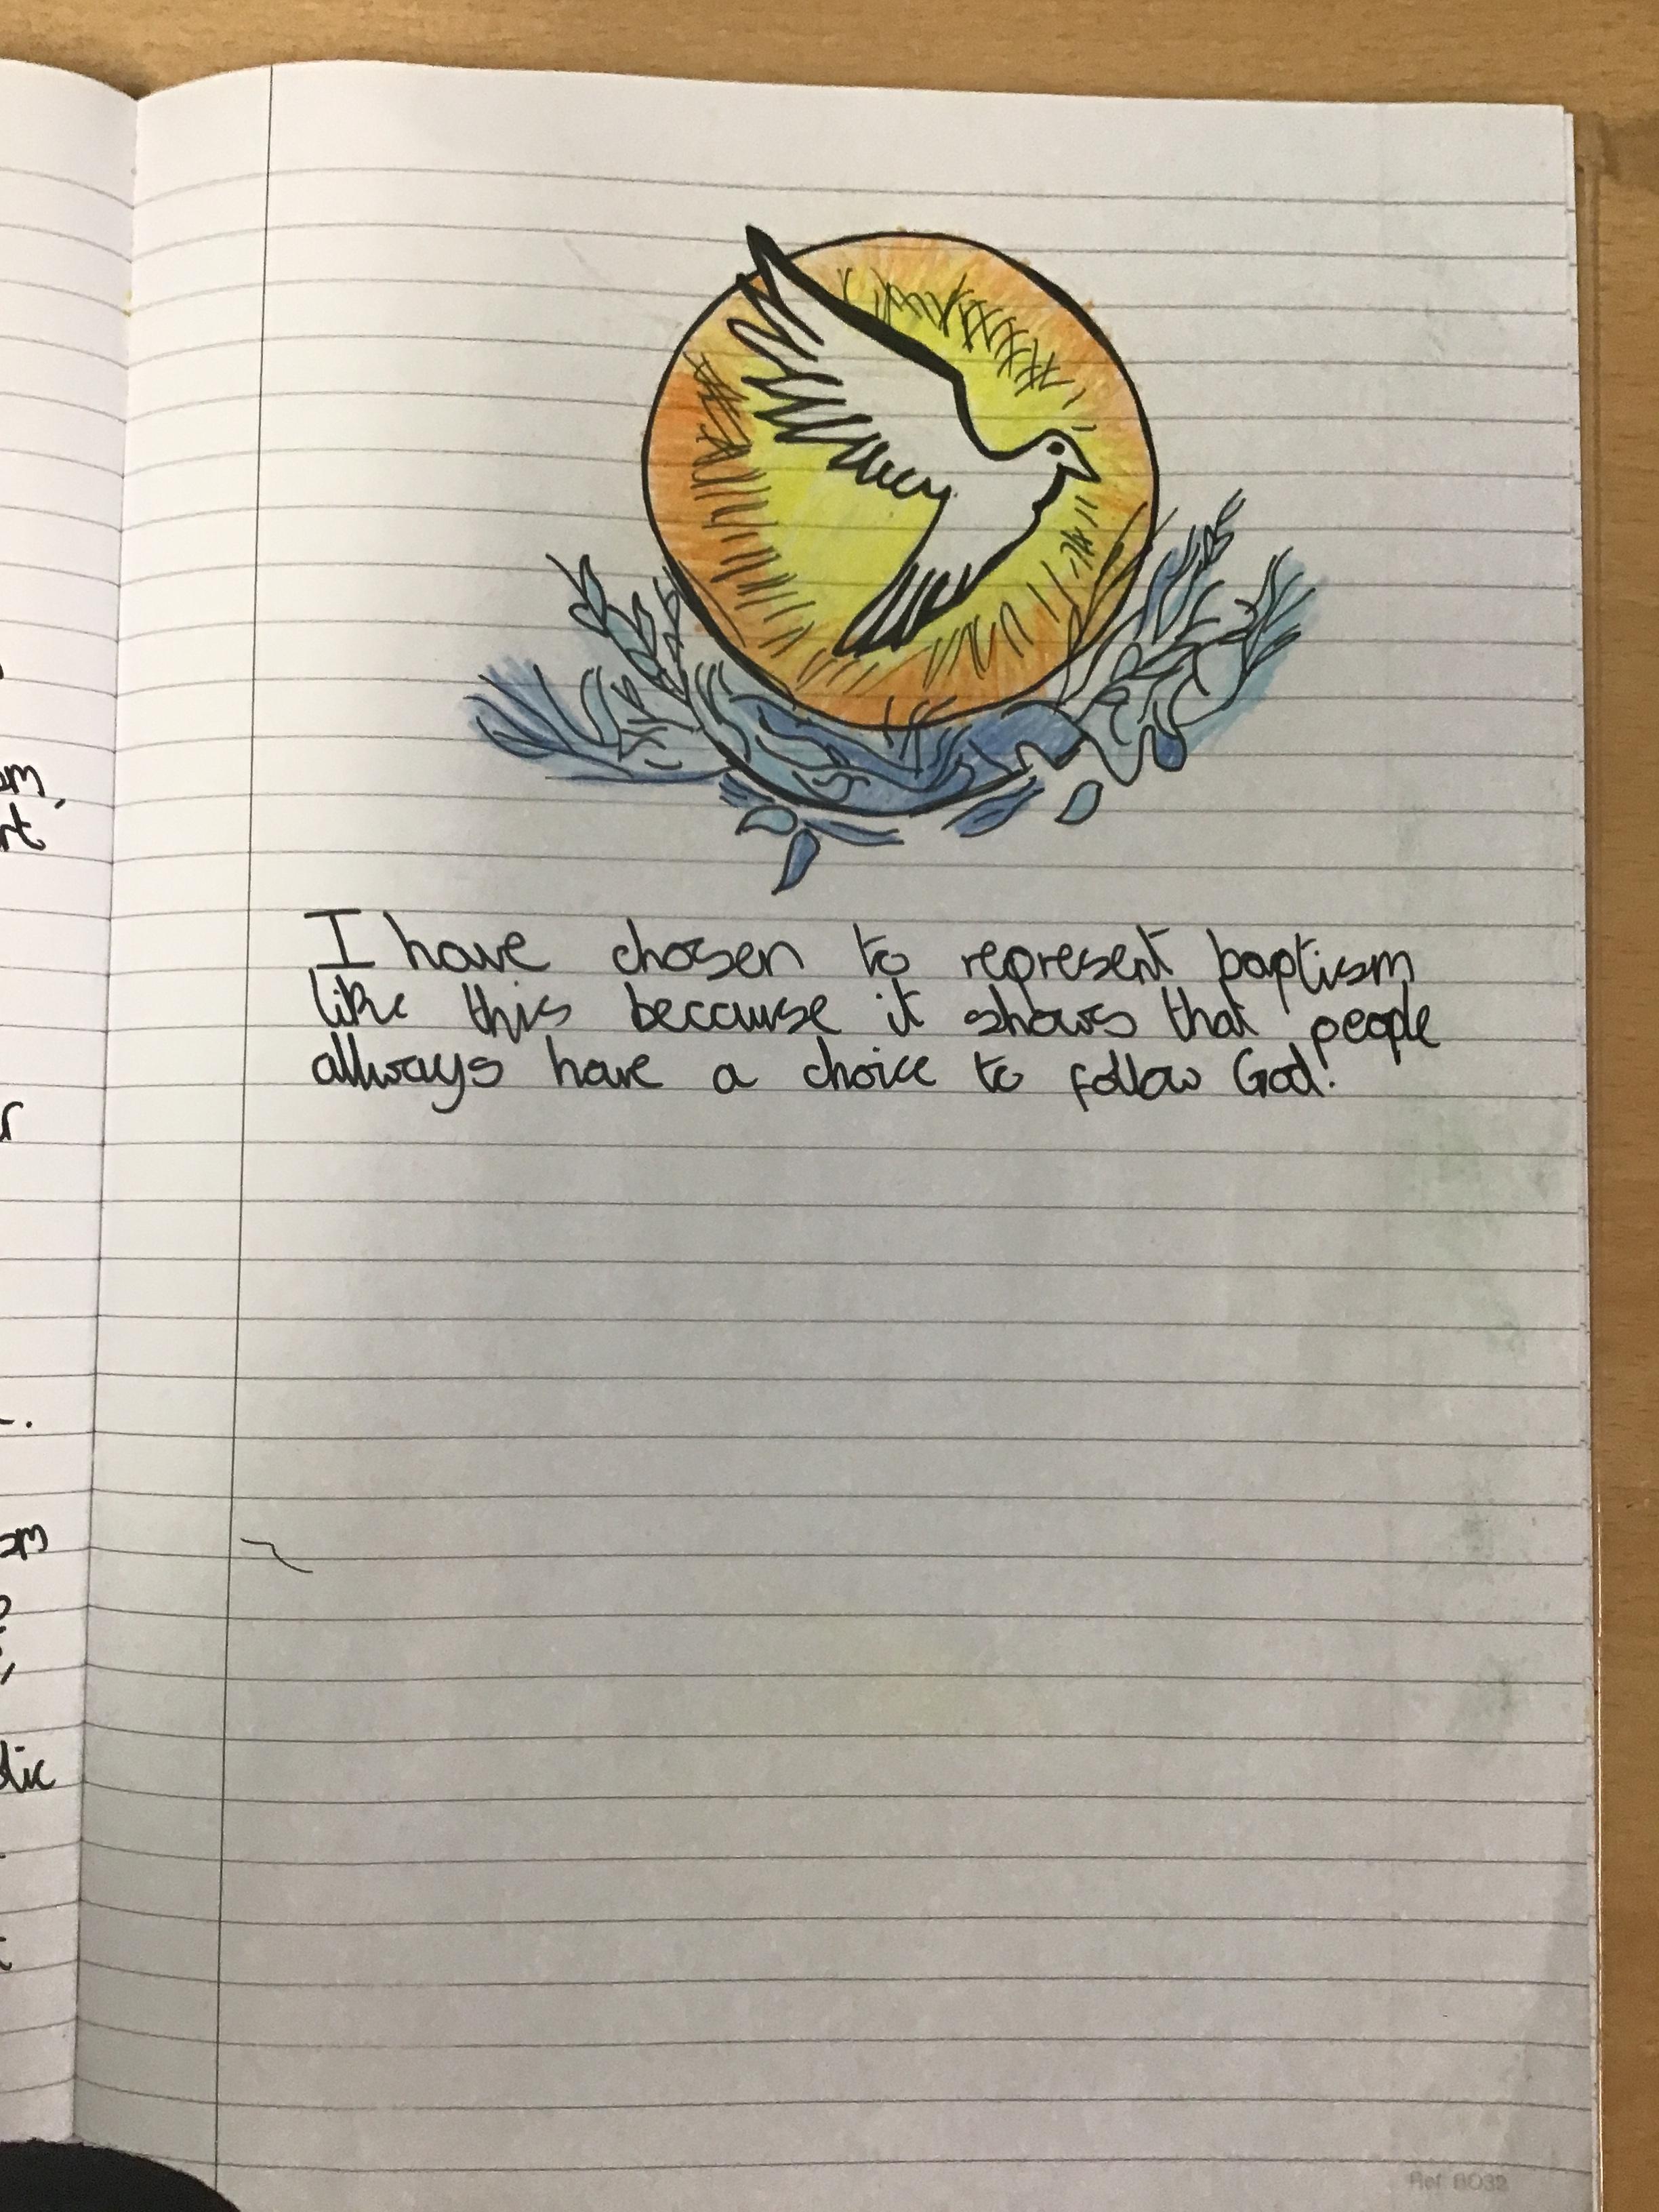 I have chosen to represent baptism
like this because it shows that people
allways have a choice to follow God!
Ref: BO32